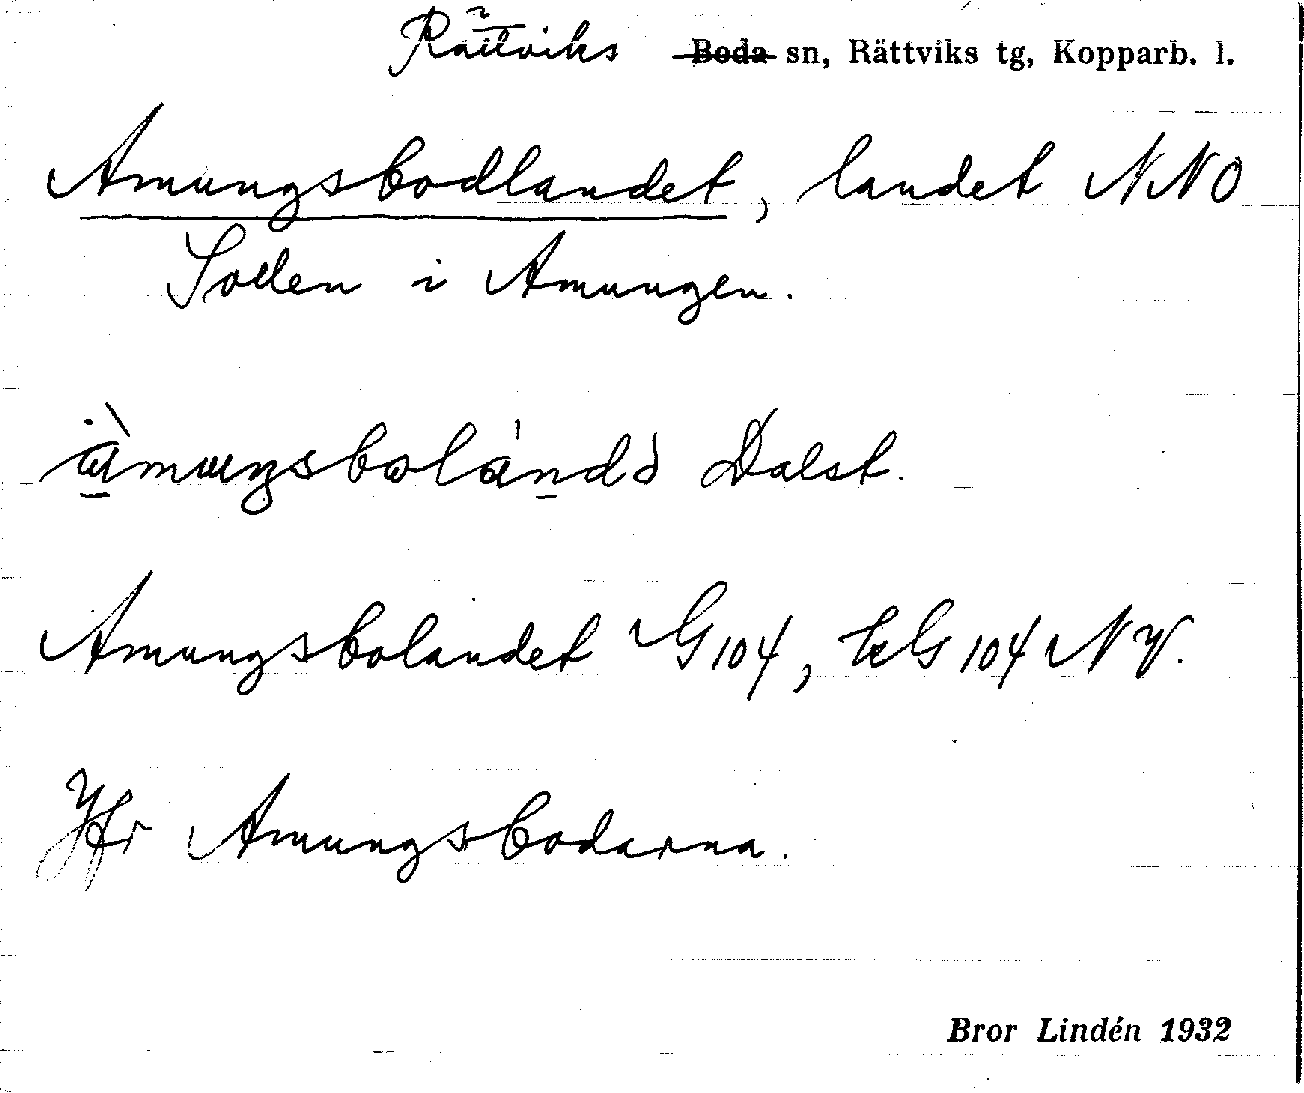 Rättviks Boda sn, Rättviks tg, Kopparb. l.
Amungsbodlandet, landet NNO
Sollen i Amungen.
Dalst.
Amungsbolandet G 104, kG 104 NV.
Jfr Amungsbodarna.
Bror Lindén 1932